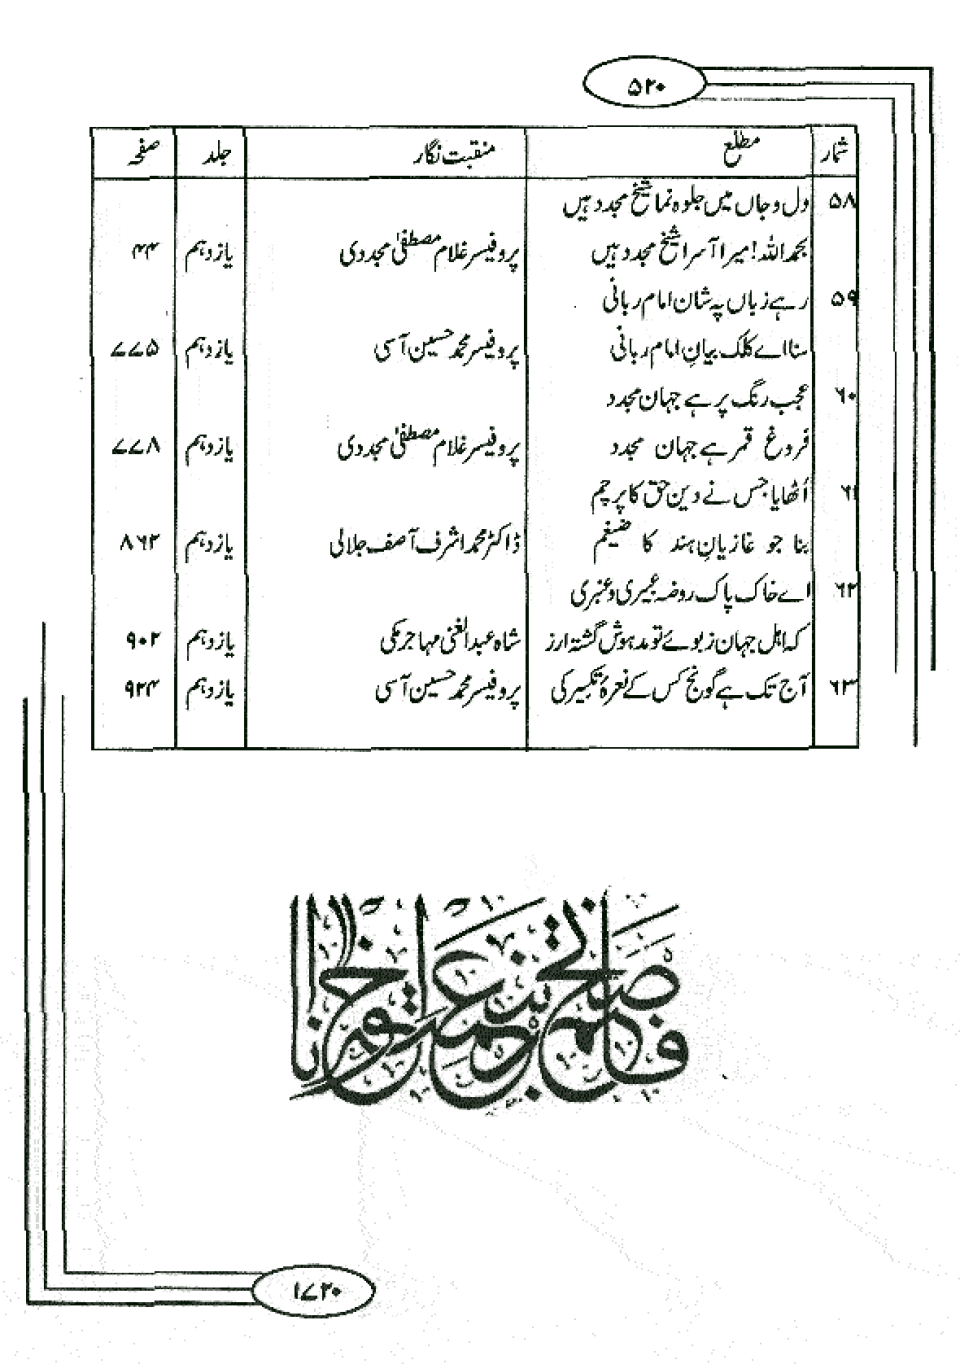 ۵۲۰
شمار مطلع منقبت نگار جلد صفحہ
۵۸ دل و جاں میں جلوہ نما شیخ مجدد ہیں
بحمد اللہ! میرا آسرا شیخ مجدد ہیں پروفیسر غلام مصطفیٰ مجددی یازدہم ۴۴
۵۹ رہے زباں پہ شان امام ربانی
سنا اے کلک بیانِ امام ربانی پروفیسر محمد حسین آسی یازدہم ۷۷۵
۶۰ عجب رنگ پر ہے جہان مجدد
فروغ قمر ہے جہان مجدد پروفیسر غلام مصطفیٰ مجددی یازدہم ۷۷۸
۶۱ اُٹھایا جس نے دین حق کا پرچم
بنا جو غازیانِ ہند کا ضیغم ڈاکٹر محمد اشرف آصف جلالی یازدہم ۸۶۲
۶۲ اے خاک پاک روضہ عبیری و عنبری
کہ اہل جہان ز بوئے تو مدہوش گشتہ ارز شاہ عبدالغنی مہاجر مکی یازدہم ۹۰۲
۶۳ آج تک ہے گونج کس کے نعرۂ تکبیر کی پروفیسر محمد حسین آسی یازدہم ۹۲۴
فاصبحتم بنعمته اخوانا
۱۷۲۰